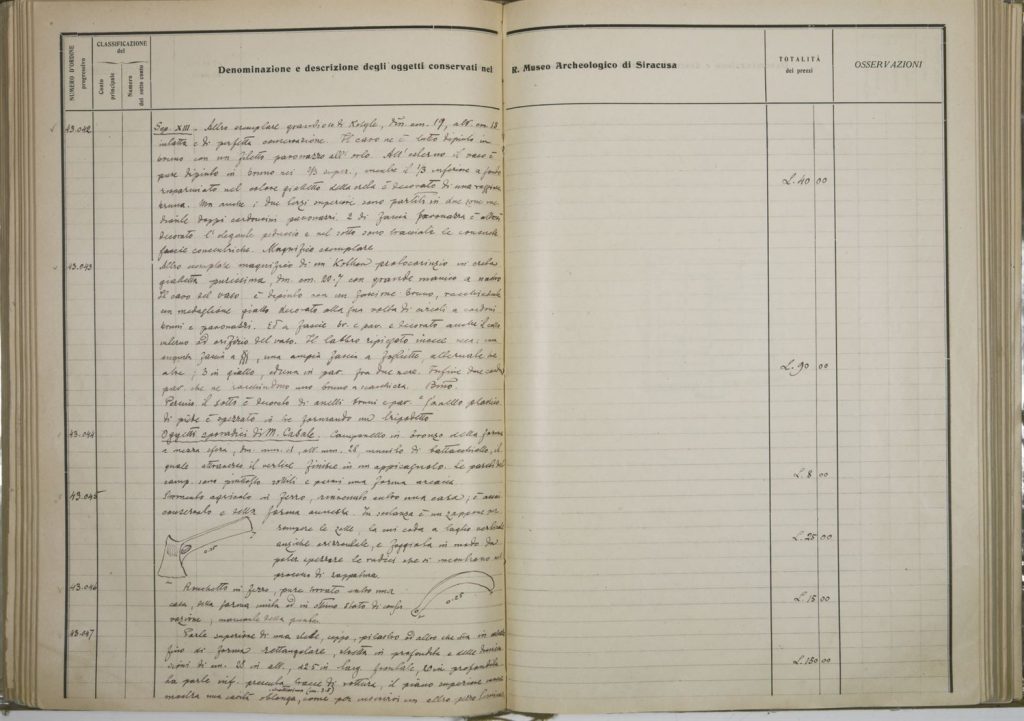 NUMERO D'ORDINE progressivo
CLASSIFICAZIONE del
Conto principale
Numero del sotto conto
Denominazione e descrizione degli oggetti conservati nel R. Museo Archeologico di Siracusa
TOTALITÀ dei prezzi
OSSERVAZIONI
43.042 Sep. XIII - Altro esemplare di Kotyle, dm. cm. 19, alt. cm. 13
intatta e di perfetta conservazione. Il cavo ne è tutto dipinto in
bruno con un filetto paonazzo all'orlo. All'esterno il vaso è
pure dipinto in bruno nei 2/3 super., mentre il 1/3 inferiore a fondo
risparmiato nel colore gialletto della creta è decorato di una raggiera
bruna. Ma anche i due terzi superiori sono partiti in due zone me-
diante doppi cordoncini paonazzi. 2 di fascia paonazza è
decorato l'elegante peduccio e nel sotto sono tracciate le consuete
fascie concentriche. Magnifico esemplare
L. 40 00
43.043 Altro esemplare magnifico di un Kothon protocorinzio in creta
gialletta purissima, dm. cm. 20.7 con grande manico a nastro
Il cavo del vaso è dipinto con un fascione bruno, racchiudente
un medaglione giallo decorato alla sua volta di circoli a cordoni
bruni e paonazzi. Ed a fascie br. e pav. è decorato anche il
interno ed orifizio del vaso. Il labbro ripiegato invece reca una
angusta fascia a, una ampia fascia a foglietta, alternate in
3 in giallo, una in pav. fra due nere. Infine due
pav. che ne racchiudono uno bruno a scacchiera.
Persino il sotto è decorato di anelli bruni e pav. L'anello plastico
di piede è spezzato in tre formando un tripodetto
L. 90 00
43.044 Oggetti sporadici di M. Casale. Campanello in bronzo della forma
a mezza sfera, dm. mm. alt. mm. 28, munito di battacchietto, il
quale attraverso il vertice finisce in un appiccagnolo. Le pareti del
camp. sono piuttosto sottili e parmi una forma arcaica
L. 8 00
43.045 Strumento agricolo in ferro, rinvenuto entro una casa, è assai
conservato e della forma annessa. In sostanza è un zappone per
rompere le zolle, la cui coda a taglio verticale
anziché orizzontale, è foggiata in modo da
poter spezzare le radici che si incontrano nel
processo di zappatura
L. 25 00
43.046 Ronchetto in ferro, pure trovato entro una
casa, della forma unita ed in ottimo stato di conser-
vazione, mancante della punta.
0.25
L. 15 00
43.047 Parte superiore di una stele, ceppo, pilastro ed altro che sia in
fino di forma rettangolare, in profondità e delle dimen-
sioni di cm. 23 in alt., 42.5 in larg. frontale, 20 in profondità
ha parte inf. presenta tracce di rottura, il piano superiore invece
mostra una cavità oblunga, come per inserirvi un altro pezzo
L. 150 00